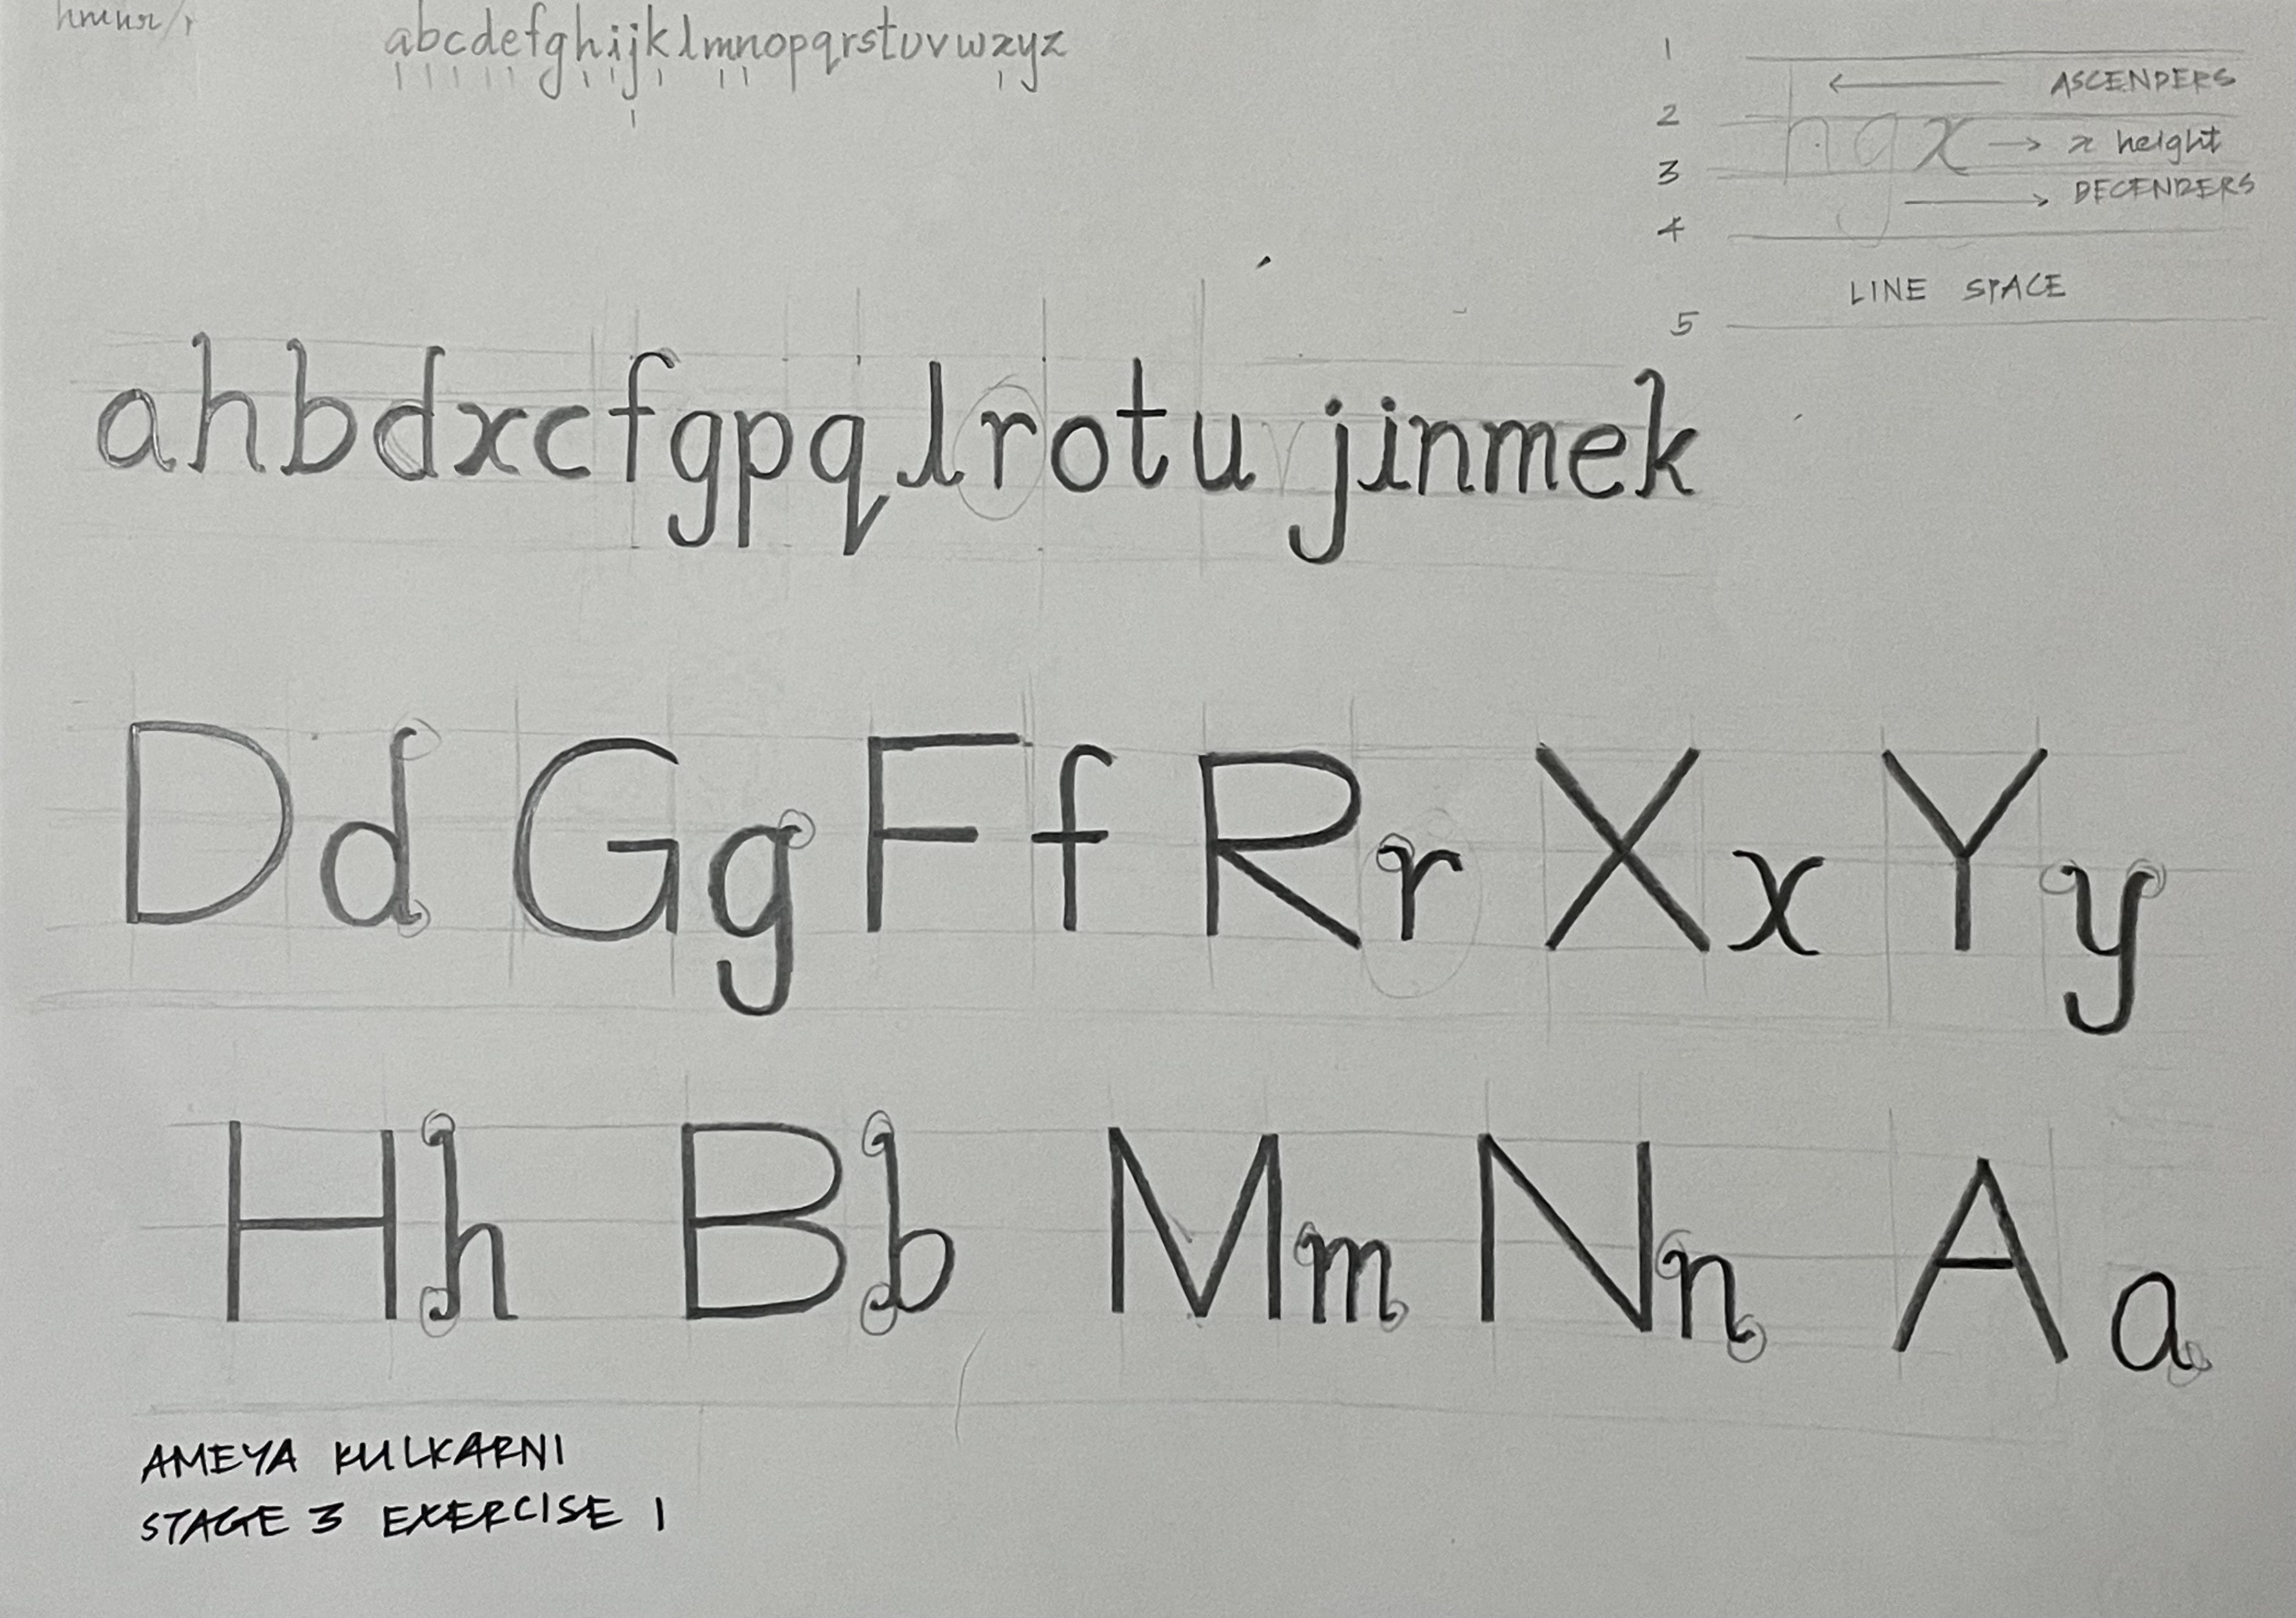 abcdefghijklmnopqrstuvwxyz
1
ASCENDERS
2
h g x → x height
3
DECENDERS
4
LINE SPACE
5
ahbdxcfgpqlrotu jinmek
Dd Gg Ff Rr Xx Yy
Hh Bb Mm Nn Aa
AMEYA KULKARNI
STAGE 3 EXERCISE 1